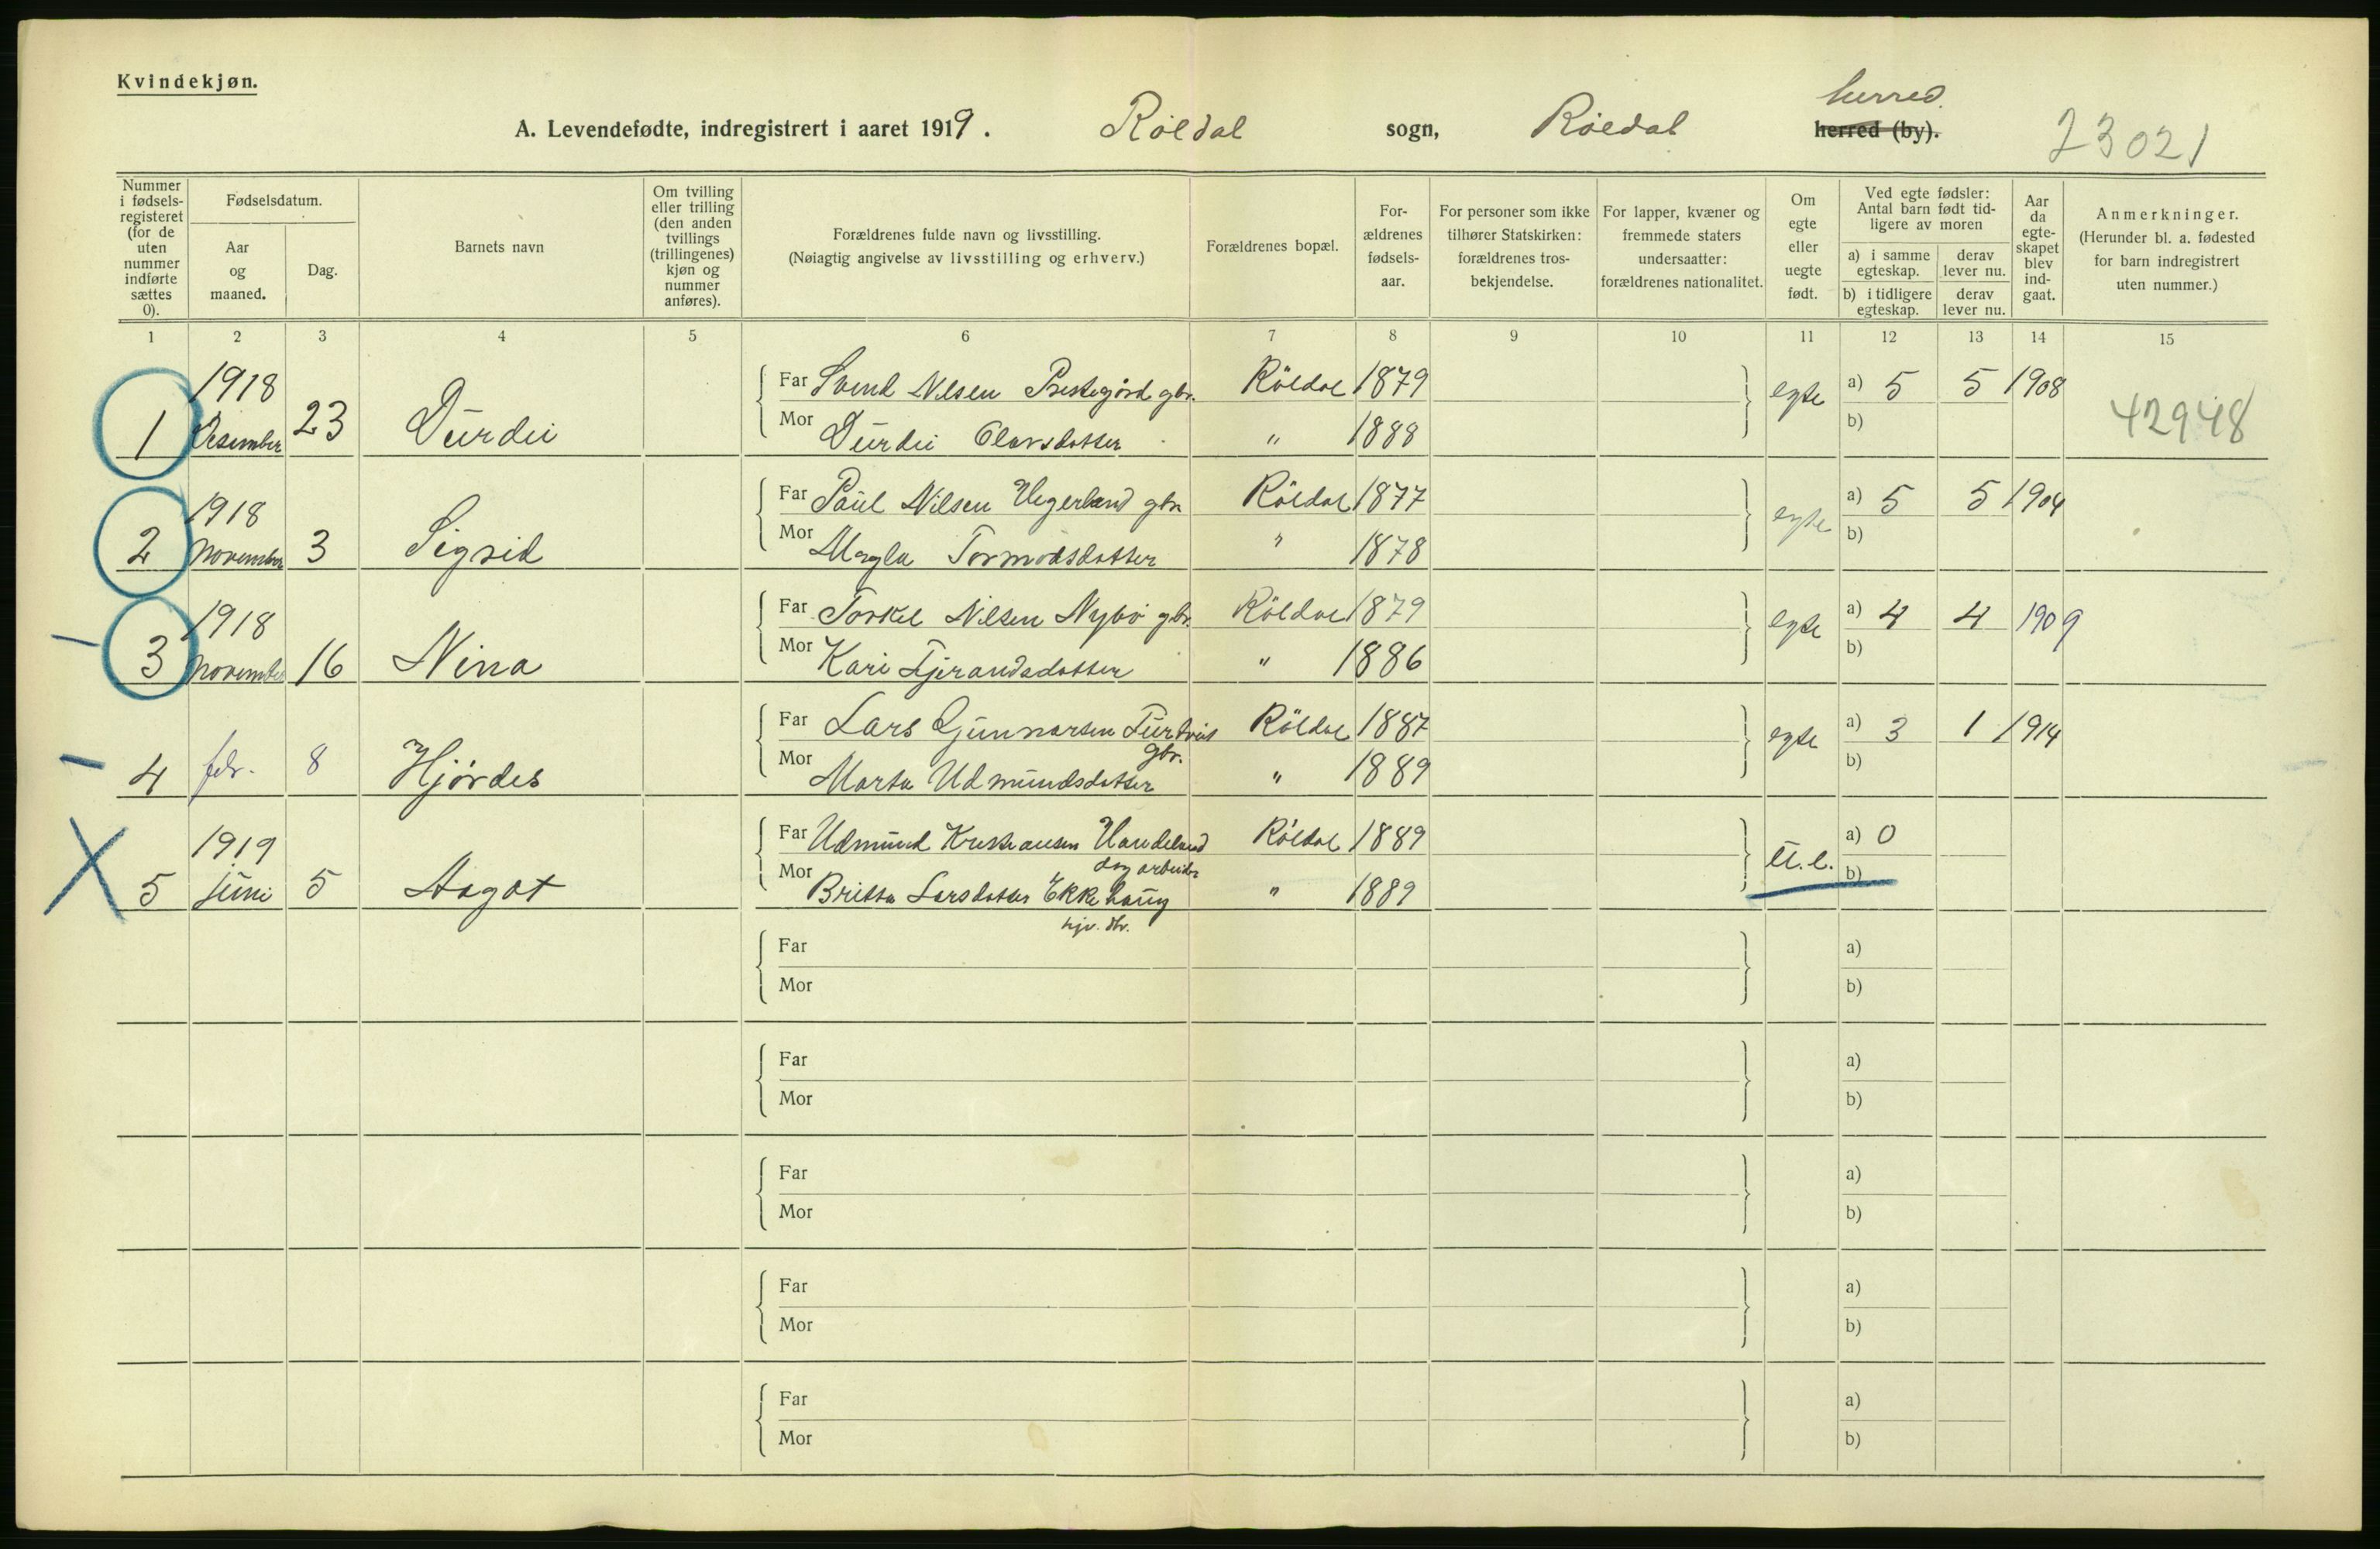 Kvindekjøn.
A. Levendefødte, indregistrert i aaret 1919. Röldal sogn, Röldal herred herred (by). 23021
Nummer i fødselsregisteret (for de uten nummer indførte sættes 0).
Fødselsdatum.
Aar og maaned.
Dag.
Barnets navn
Om tvilling eller trilling (den anden tvillings (trillingenes) kjøn og nummer anføres).
Forældrenes fulde navn og livsstilling.
(Nøiagtig angivelse av livsstilling og erhverv.)
Forældrenes bopæl.
For-ældrenes fødsels-aar.
For personer som ikke tilhører Statskirken: forældrenes tros-bekjendelse.
For lapper, kvæner og fremmede staters undersaatter: forældrenes nationalitet.
Om egte eller uegte født.
Ved egte fødsler: Antal barn født tid-ligere av moren
a) i samme egteskap. derav lever nu.
b) i tidligere egteskap. derav lever nu.
Aar da egte-skapet blev ind-gaat.
Anmerkninger.
(Herunder bl. a. fødested for barn indregistrert uten nummer.)
1 2 3 4 5 6 7 8 9 10 11 12 13 14 15
1918 Far Svend Nilsen Prestegård gbr. Röldal 1879 egte a) 5 5 1908
1 Desember 23 Durdei Mor Durdei Olavsdotter " 1888 b) 42948
1918 Far Paul Nilsen Hegerland gbr Röldal 1877 egte a) 5 5 1904
2 November 3 Sigrid Mor Magla Tormodsdotter " 1878 b)
1918 Far Torkel Nilsen Nybø gbr. Röldal 1879 egte a) 4 4 1909
3 November 16 Nina Mor Kari Tjerandsdotter " 1886 b)
Far Lars Gunnarsen Röldal 1887 egte a) 3 1 1914
gbr.
4 febr. 8 Hjördes Mor Marta Udmundsdotter " 1889 b)
1919 Far Udmund Kristiansen Handeland Röldal 1889 U.e. a) 0
dagarbeider
5 juni 5 Aagot Mor Britta Larsdotter Ekkehaug " 1889 b)
Far a)
Mor b)
Far a)
Mor b)
Far a)
Mor b)
Far a)
Mor b)
Far a)
Mor b)